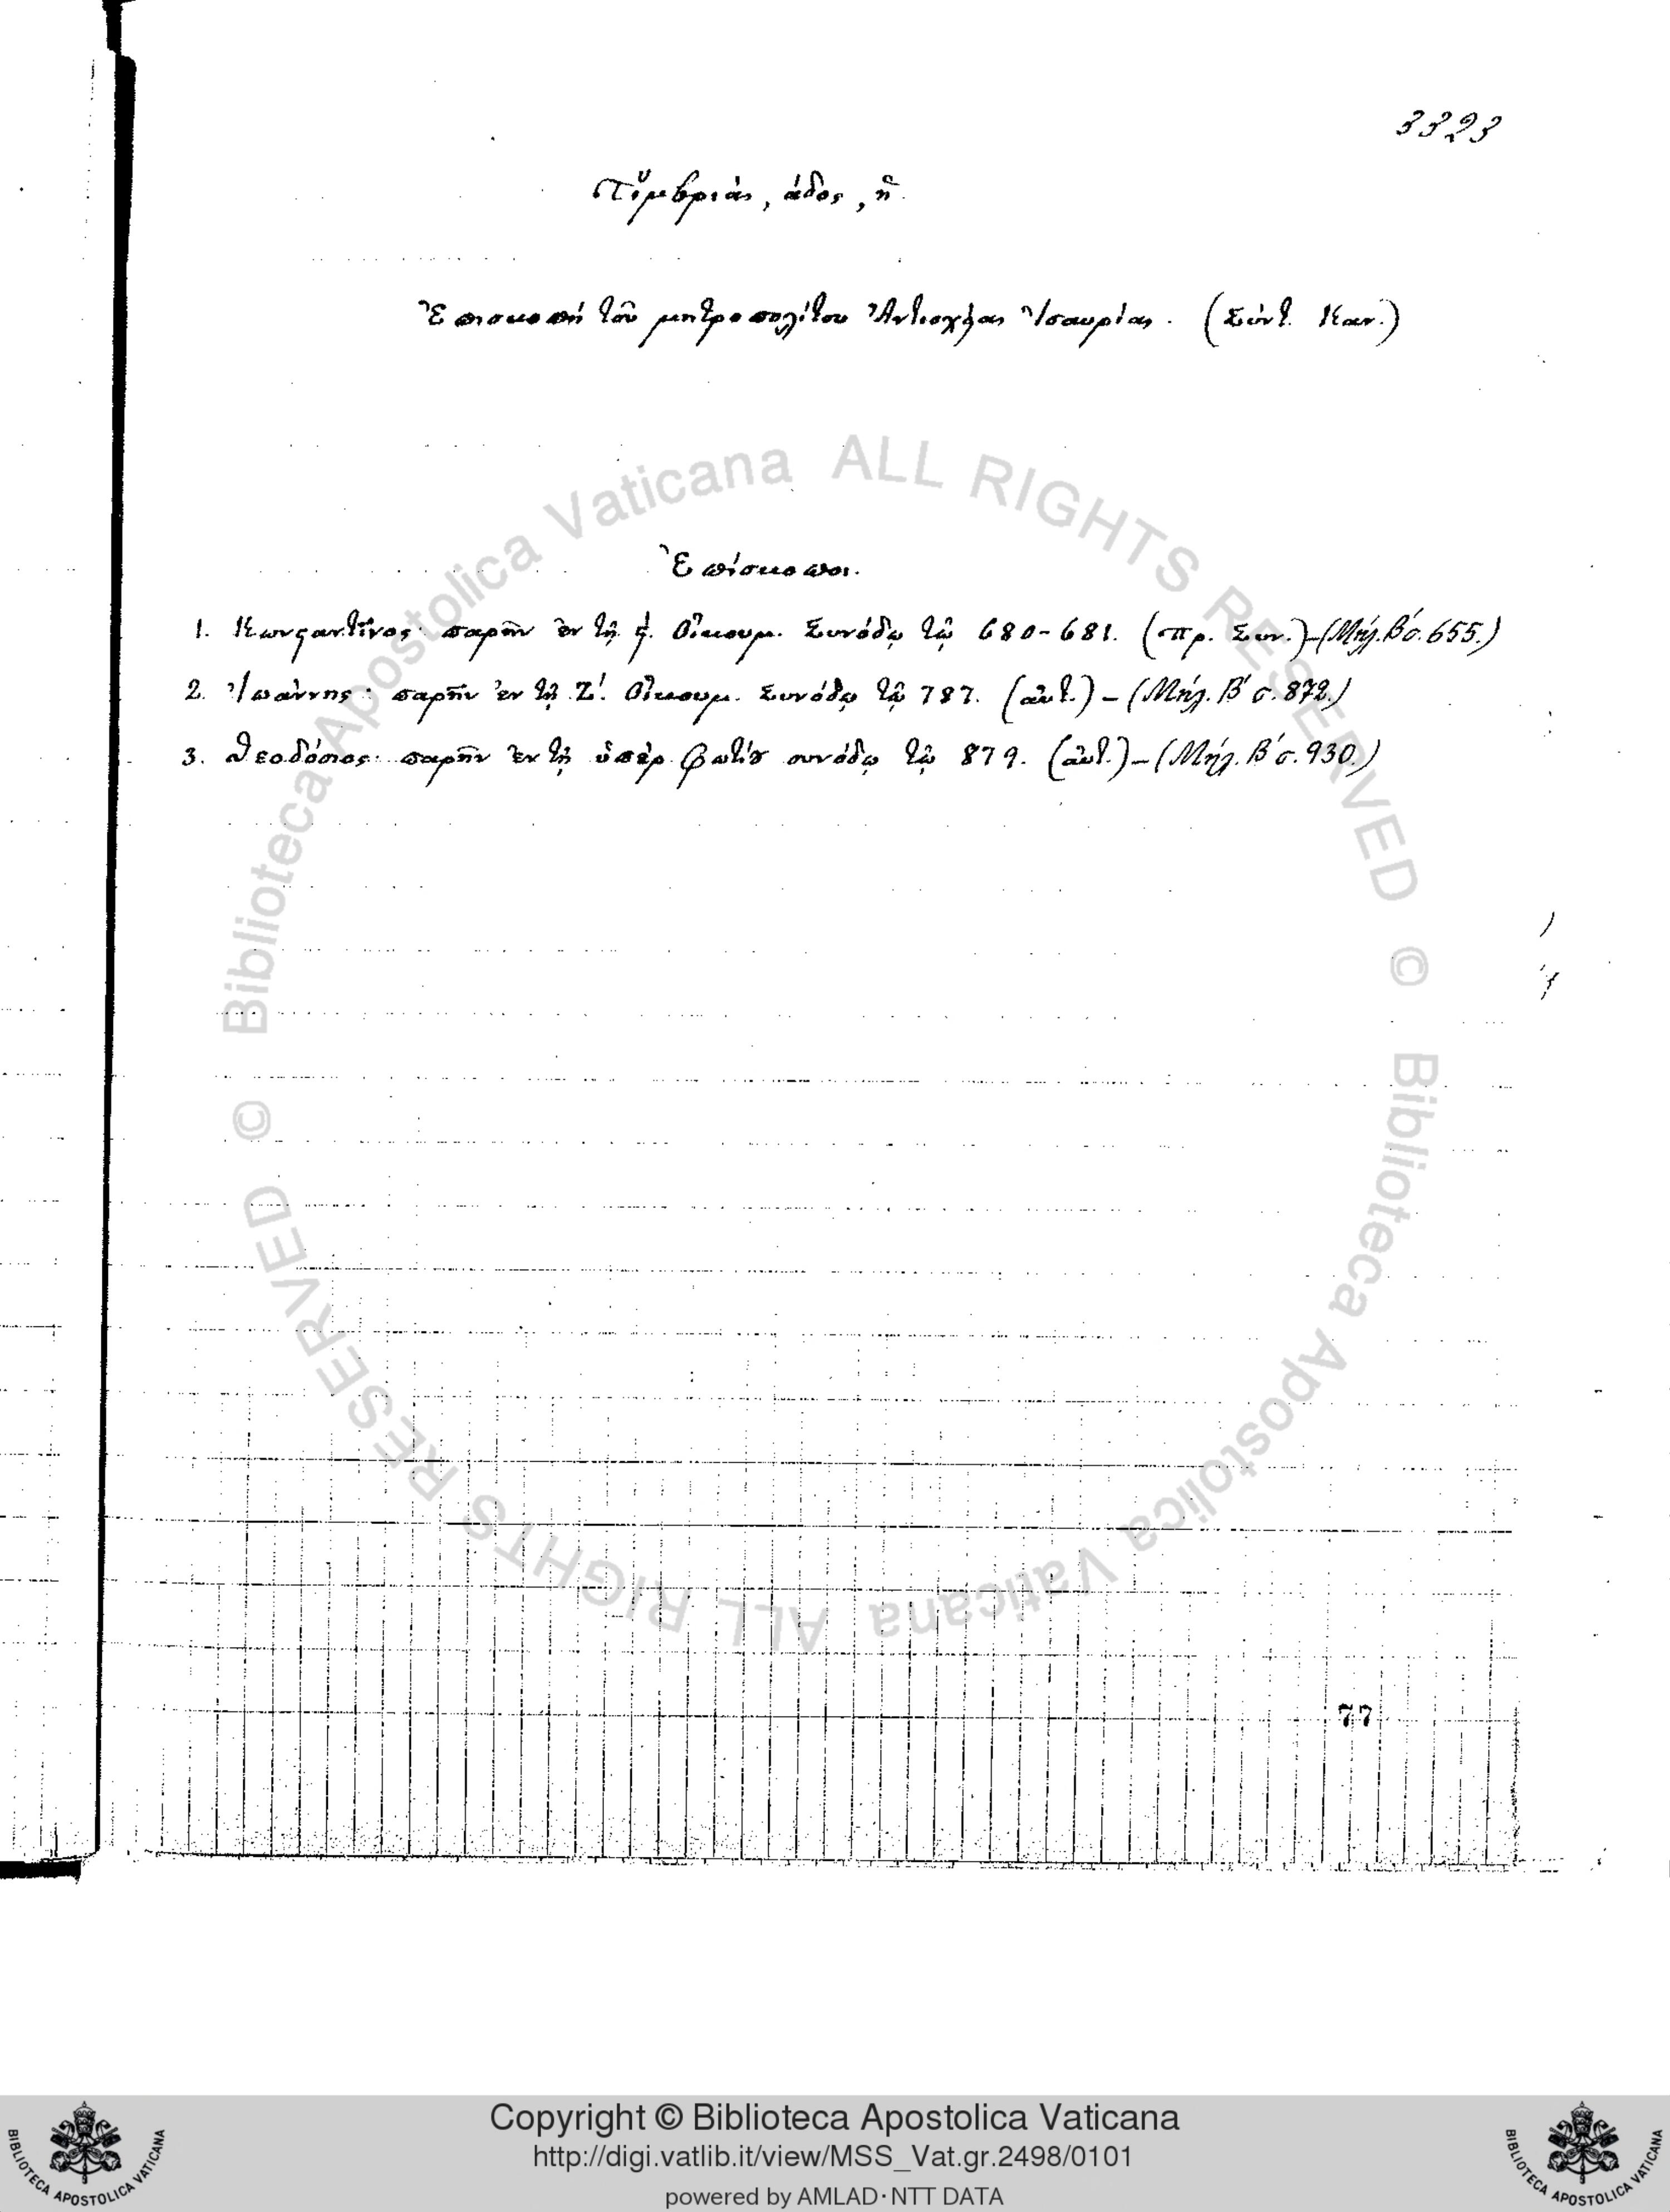 3323
Τῦμβριάς, άδος, ἡ.
Ἐπισκοπή τοῦ μητροπολίτου Ἀντιοχείας Ἰσαυρίας. (Σύντ. Καν.)
Biblioteca Apostolica Vaticana ALL RIGHTS RESERVED ©
Ἐπίσκοποι.
1. Κωνϛαντῖνος· παρῆν ἐν τῇ ϛ΄. Οἰκουμ. Συνόδῳ τῷ 680-681. (πρ. Συν.)-(Μήλ. Β΄ σ. 655.)
2. Ἰωάννης: παρῆν ἐν τῇ Ζ΄. Οἰκουμ. Συνόδῳ τῷ 787. (αὐτ.) - (Μήλ. Β΄ σ. 872.)
3. Θεοδόσιος· παρῆν ἐν τῇ ὑπὲρ Φωτίȣ συνόδῳ τῷ 879. (αὐτ.) - (Μήλ. Β΄ σ. 930.)
Biblioteca Apostolica Vaticana ALL RIGHTS RESERVED ©
77
Copyright © Biblioteca Apostolica Vaticana
http://digi.vatlib.it/view/MSS_Vat.gr.2498/0101
powered by AMLAD·NTT DATA
BIBLIOTECA APOSTOLICA VATICANA
BIBLIOTECA APOSTOLICA VATICANA